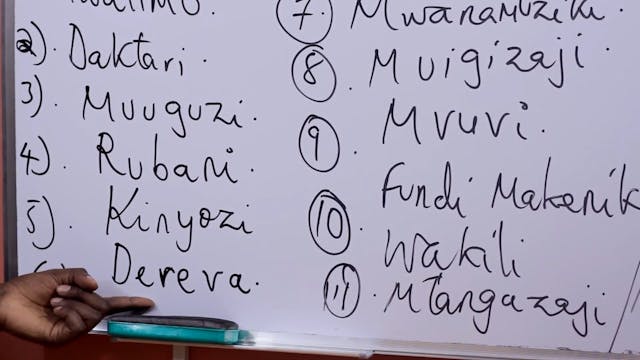 2). Daktari.
3). Muuguzi.
4). Rubani.
5). Kinyozi
Dereva.
7. Mwanamuziki.
8 Muigizaji.
9. Mvuvi.
10. Fundi Makenik
Wakili
11. Mtangazaji